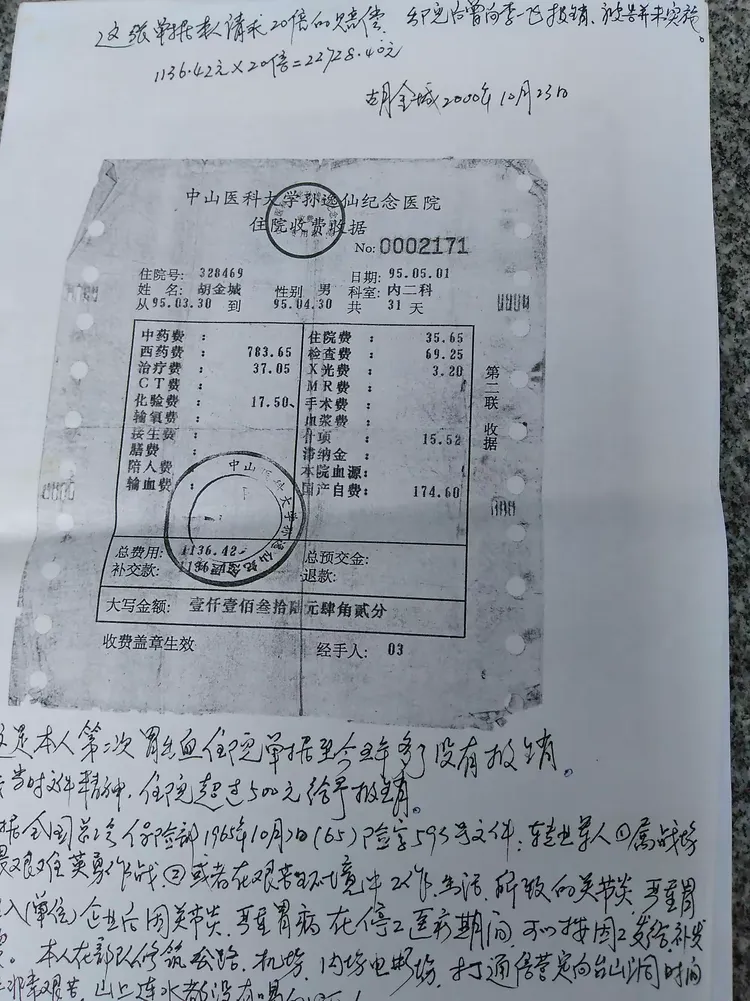 这张单据本人请求20倍的赔偿，出院后曾向李一飞报销，被告并未实施。
1136.42元×20倍=22728.40元
胡金城2000年10月23日
中山医科大学孙逸仙纪念医院
住院收费收据
No: 0002171
住院号: 328469 日期: 95.05.01
姓名: 胡金城 性别 男 科室: 内二科
从95.03.30 到 95.04.30 共 31 天
中药费: 住院费: 35.65
西药费: 783.65 检查费: 69.25
治疗费: 37.05 X光费: 3.20
CT费: MR费:
化验费: 17.50 手术费:
输氧费: 血浆费:
接生费: 什项 15.52
膳费: 滞纳金:
陪人费: 本院血源:
输血费: 国产自费: 174.60
第二联 收据
中山医科大学孙逸仙纪念医院
总费用: 1136.42 总预交金:
补交款: 退款:
大写金额: 壹仟壹佰叁拾陆元肆角贰分
收费盖章生效 经手人: 03
这是本人第二次胃出血住院单据至今五年多了没有报销。
当时文件精神，住院超过500元给予报销。
据全国总工会保险部1965年10月2日(65)险字595号文件：转业军人①属战场
艰难英勇作战，②或者在艰苦环境中工作、生活，所致的关节炎，严重胃
入(单位)企业后因关节炎，严重胃病在停工医疗期间，可以按因工发给、补发
。本人在部队修筑公路，机场，内场电影场，打通信营定向台山洞时间
非常艰苦，山上连水都没有喝